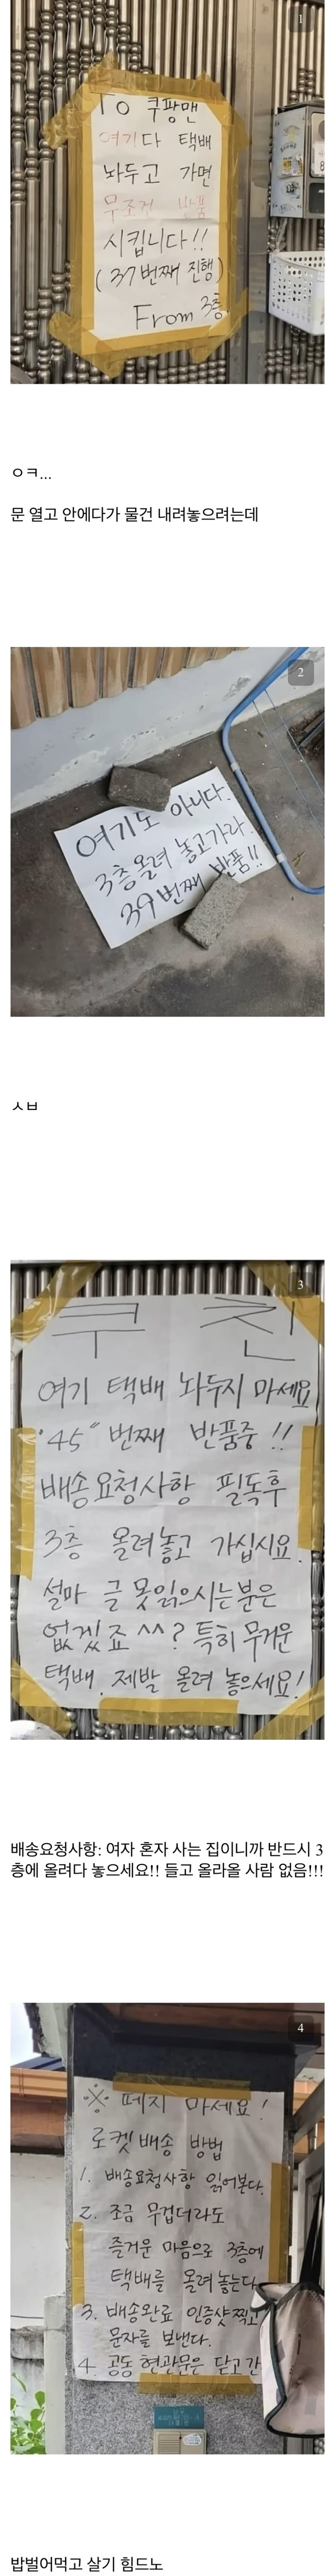 1
To 쿠팡맨
여기다 택배
놔두고 가면
무조건 반품
시킵니다!!
(37번째 진행)
From 3층
ㅇㅋ...
문 열고 안에다가 물건 내려놓으려는데
2
여기도 아니다.
3층올려 놓고가라.
39번째 반품!!
ㅅㅂ
3
쿠 친
여기 택배 놔두지 마세요
"45" 번째 반품중!!
배송요청사항 필독후
3층 올려놓고 가십시요.
설마 글 못읽으시는분은
없겠죠^^? 특히 무거운
택배. 제발 올려 놓으세요!
배송요청사항: 여자 혼자 사는 집이니까 반드시 3
층에 올려다 놓으세요!! 들고 올라올 사람 없음!!!
4
※ 떼지 마세요!
로켓배송 방법
1. 배송요청사항 읽어본다.
2. 조금 무겁더라도
즐거운 마음으로 3층에
택배를 올려놓는다
3. 배송완료 인증샷찍고
문자를 보낸다.
4. 공동현관문은 닫고간
밥벌어먹고 살기 힘드노